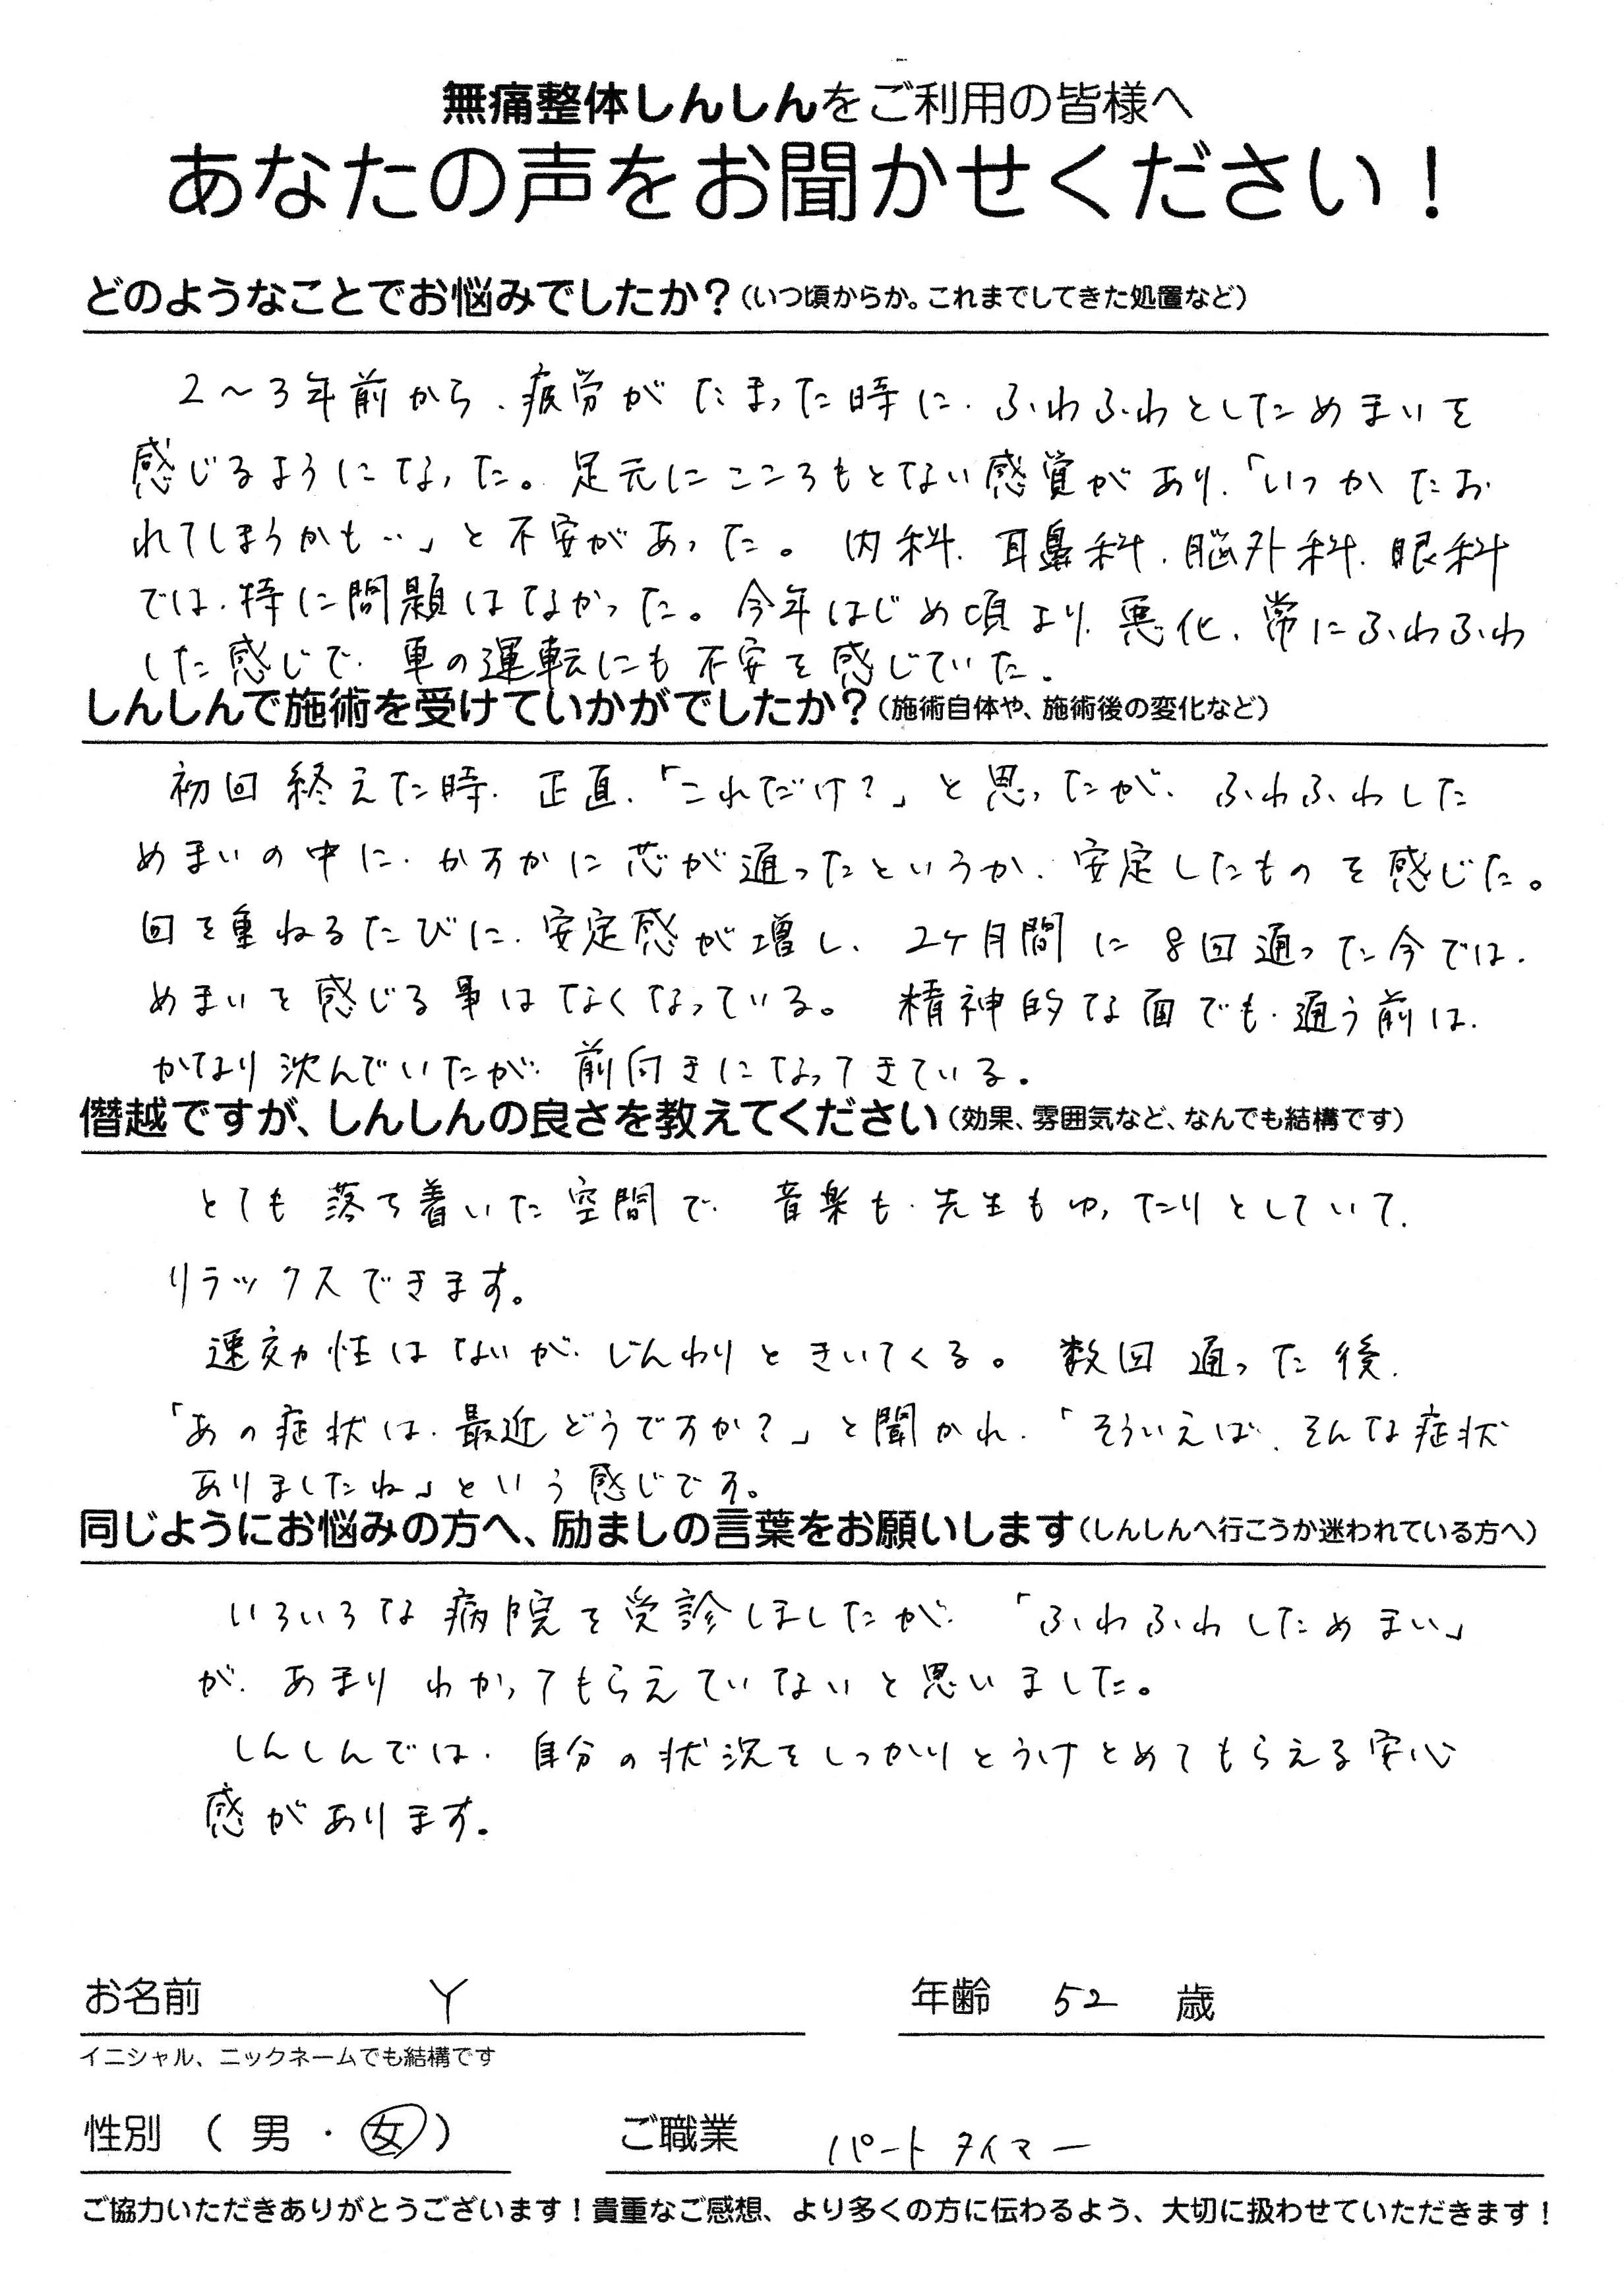 無痛整体しんしんをご利用の皆様へ
あなたの声をお聞かせください！
どのようなことでお悩みでしたか？（いつ頃からか。これまでしてきた処置など）
2～3年前から、疲労がたまった時に、ふわふわとしためまいを
感じるようになった。足元にこころもとない感覚があり、「いつかたお
れてしまうかも‥」と不安があった。内科、耳鼻科、脳外科、眼科
では、特に問題はなかった。今年はじめ頃より、悪化、常にふわふわ
した感じで、車の運転にも不安を感じていた。
しんしんで施術を受けていかがでしたか？（施術自体や、施術後の変化など）
初回終えた時、正直、「これだけ？」と思ったが、ふわふわした
めまいの中に、かすかに芯が通ったというか、安定したものを感じた。
回を重ねるたびに、安定感が増し、2ヶ月間に8回通った今では、
めまいを感じる事はなくなっている。精神的な面でも、通う前は、
かなり沈んでいたが、前向きになってきている。
僭越ですが、しんしんの良さを教えてください（効果、雰囲気など、なんでも結構です）
とても落ち着いた空間で、音楽も、先生もゆったりとしていて、
リラックスできます。
速効性はないが、じんわりときいてくる。数回通った後、
「あの症状は、最近どうですか？」と聞かれ、「そういえば、そんな症状
ありましたね」という感じです。
同じようにお悩みの方へ、励ましの言葉をお願いします（しんしんへ行こうか迷われている方へ）
いろいろな病院を受診しましたが、「ふわふわしためまい」
が、あまりわかってもらえていないと思いました。
しんしんでは、自分の状況をしっかりとうけとめてもらえる安心
感があります。
お名前 Y 年齢 52 歳
イニシャル、ニックネームでも結構です
性別（男・女） ご職業 パートタイマー
ご協力いただきありがとうございます！貴重なご感想、より多くの方に伝わるよう、大切に扱わせていただきます！